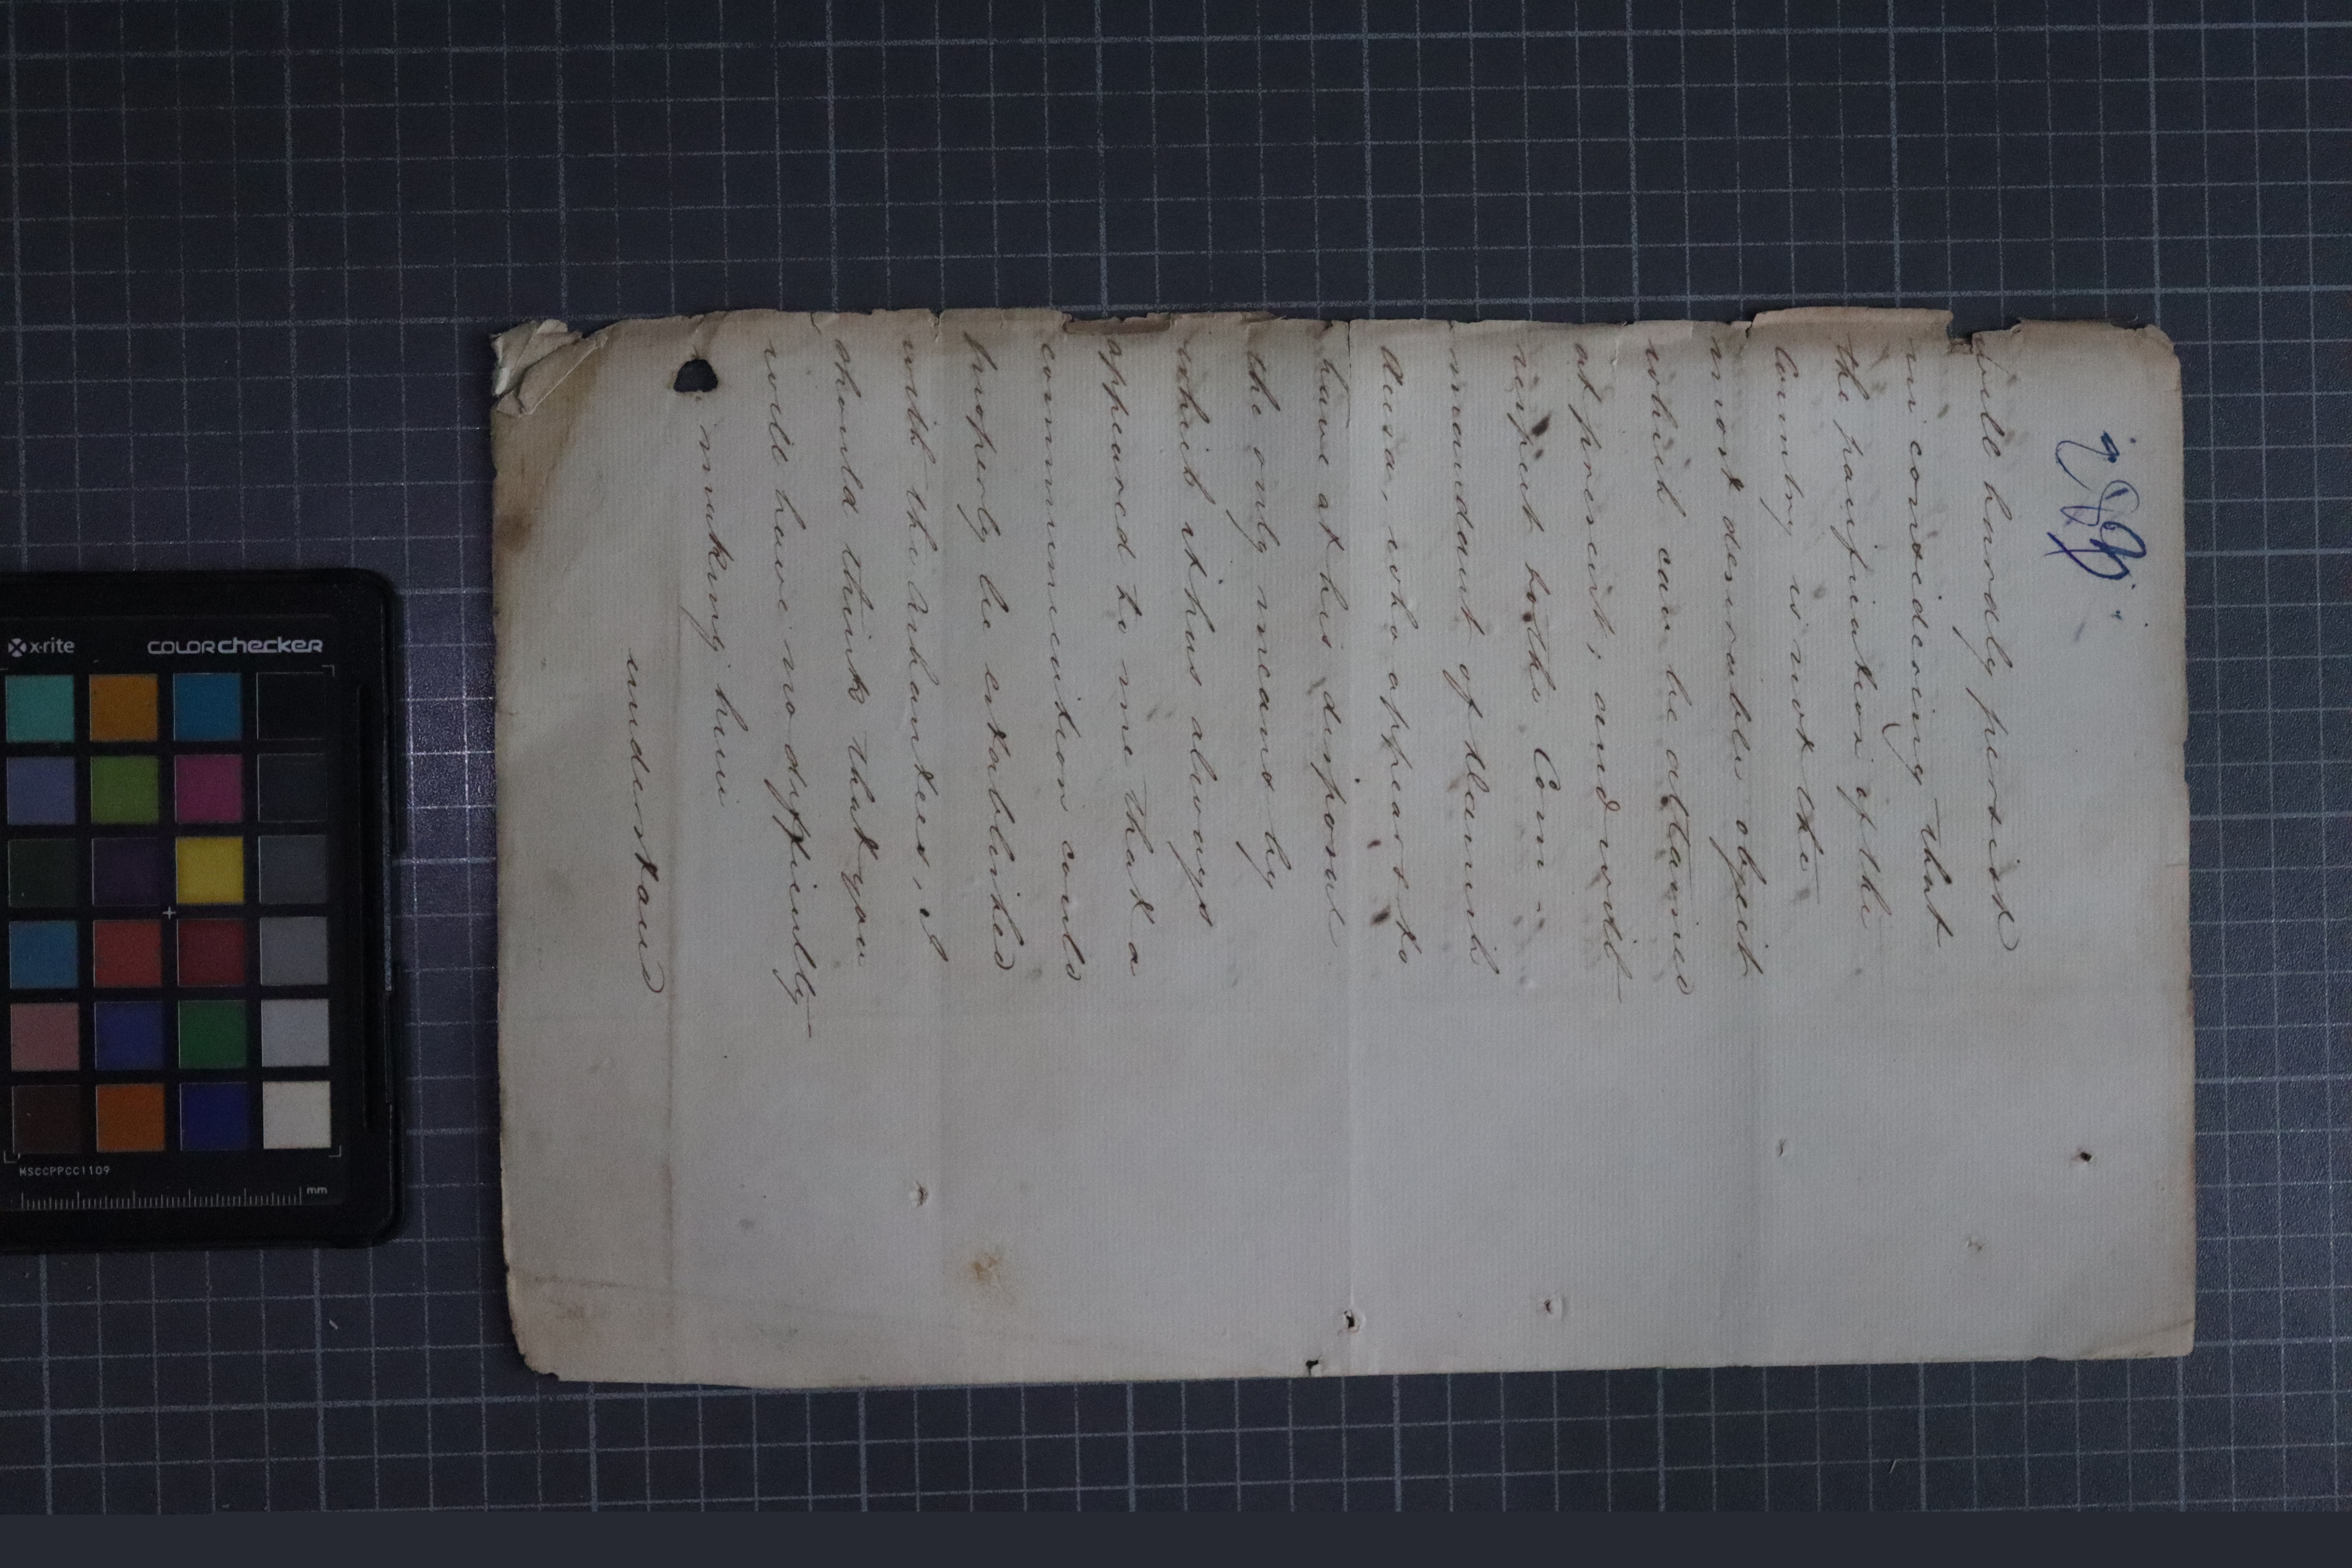 will hardly persist
in considering that
the pacification of the
Country is not the
most desirable object
which can be obtained
at present; and with
respect to the Com-
mandant of Danish
Accra, who appears to
have at his disposal
the only means by
which it has always
appeared to me that a
communication could
properly be established
with the Ashantees, I
should think that you
will have no difficulty
making him
understand
x-rite
COLORchecker
MSCCPPCC1109
mm